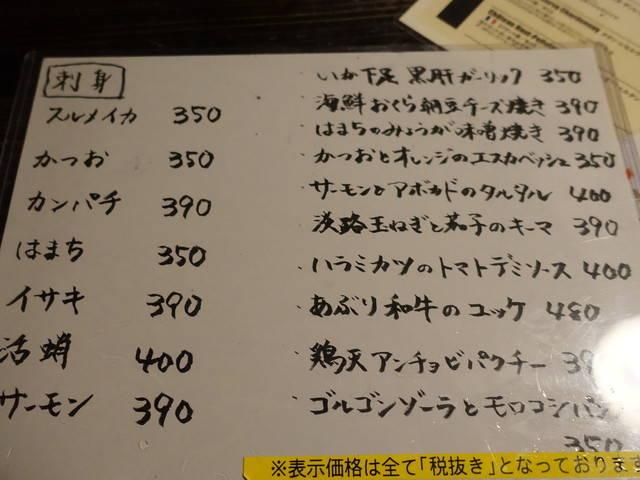 刺身
スルメイカ 350
かつお 350
カンパチ 390
はまち 350
イサキ 390
活蛸 400
サーモン 390
・いか下足 黒肝ガーリック 350
・海鮮おくら納豆チーズ焼き 390
・はまちのみょうが味噌焼き 390
・かつおとオレンジのエスカベッシュ 350
・サーモンとアボカドのタルタル 400
・淡路玉ねぎと茄子のキーマ 390
・ハラミカツのトマトデミソース 400
・あぶり和牛のユッケ 480
・鶏天アンチョビパクチー 39
・ゴルゴンゾーラとモロコシパン
350
※表示価格は全て「税抜き」となっております